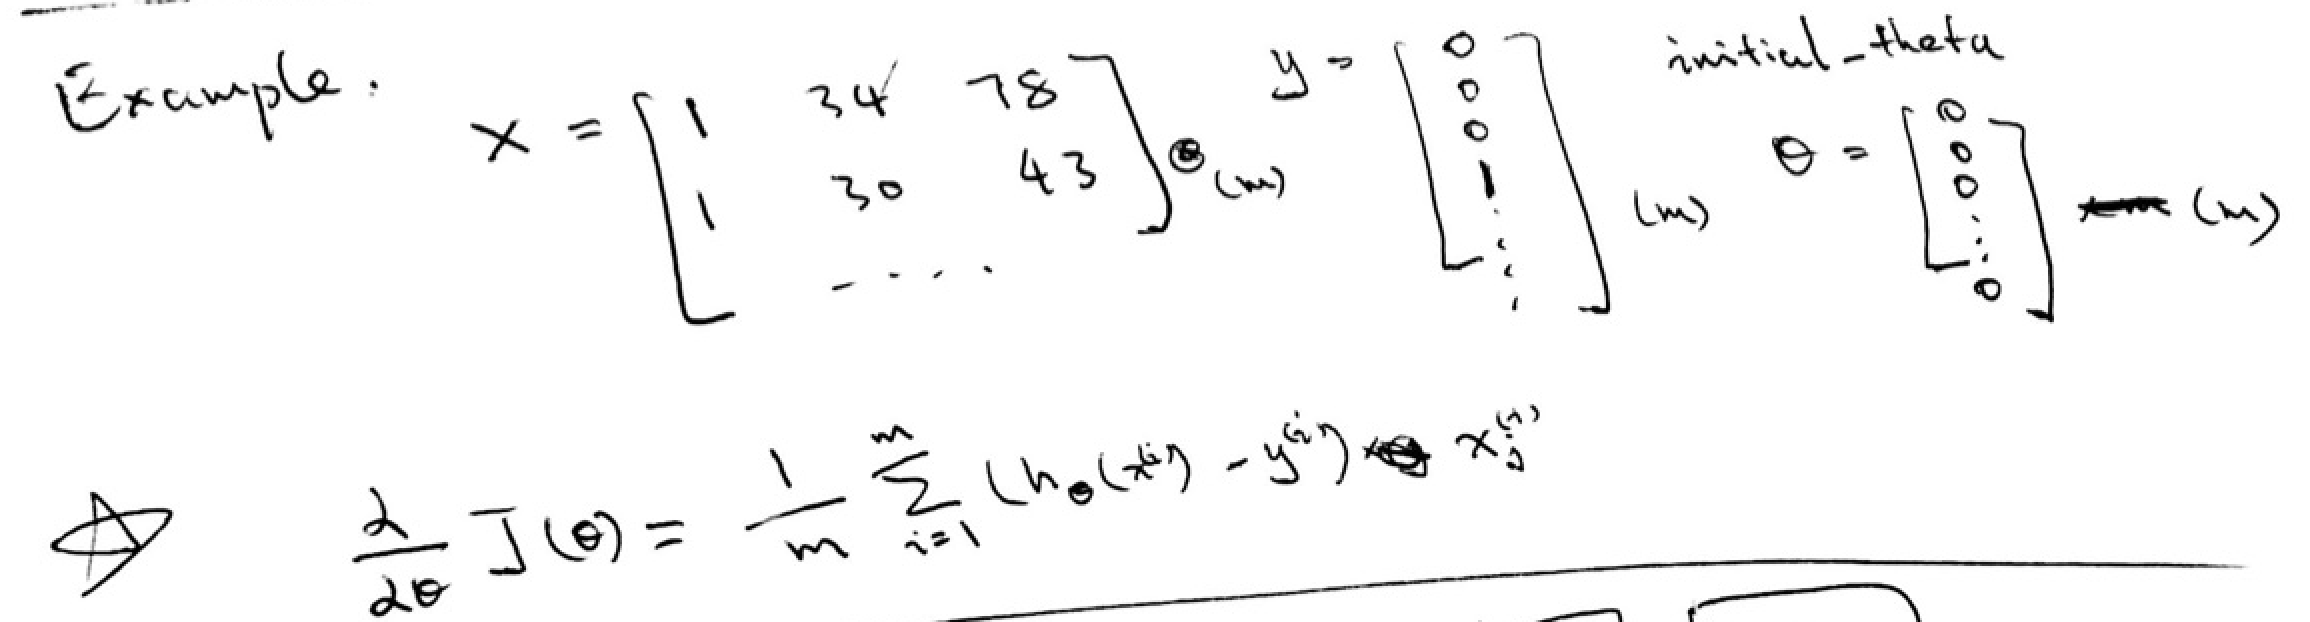 Example. X = [ 1 34 78 ; 1 30 43 ; .... ] (m) y = [ 0 0 0 1 ⋮ ] (m) initial_theta θ = [ 0 0 0 ⋮ 0 ] (m)
☆ ∂/∂θ J(θ) = 1/m Σ_{i=1}^{m} (h_θ(x^{(i)}) - y^{(i)}) x_j^{(i)}